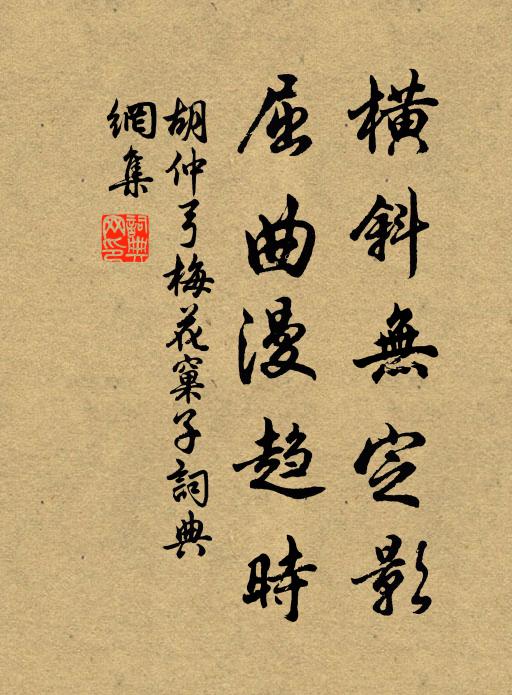 橫斜無定影
屈曲漫趨時
胡仲弓梅花窠子詞典
網集
詞典
网印